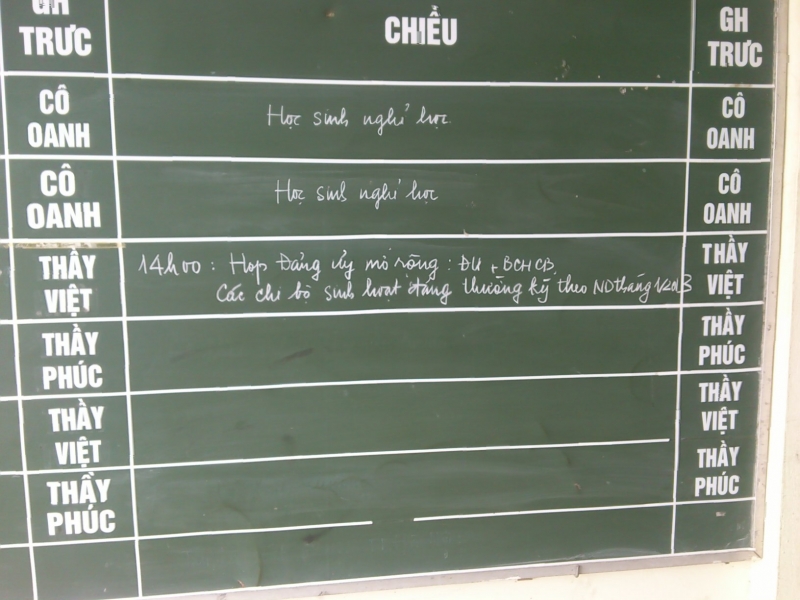 GH TRỰC CHIỀU GH TRỰC
CÔ OANH Học sinh nghỉ học CÔ OANH
CÔ OANH Học sinh nghỉ học CÔ OANH
THẦY VIỆT 14h00: Họp Đảng ủy mở rộng: ĐU + BCHCB THẦY VIỆT
Các chi bộ sinh hoạt đảng thường kỳ theo ND tháng 1/2013
THẦY PHÚC THẦY PHÚC
THẦY VIỆT THẦY VIỆT
THẦY PHÚC THẦY PHÚC